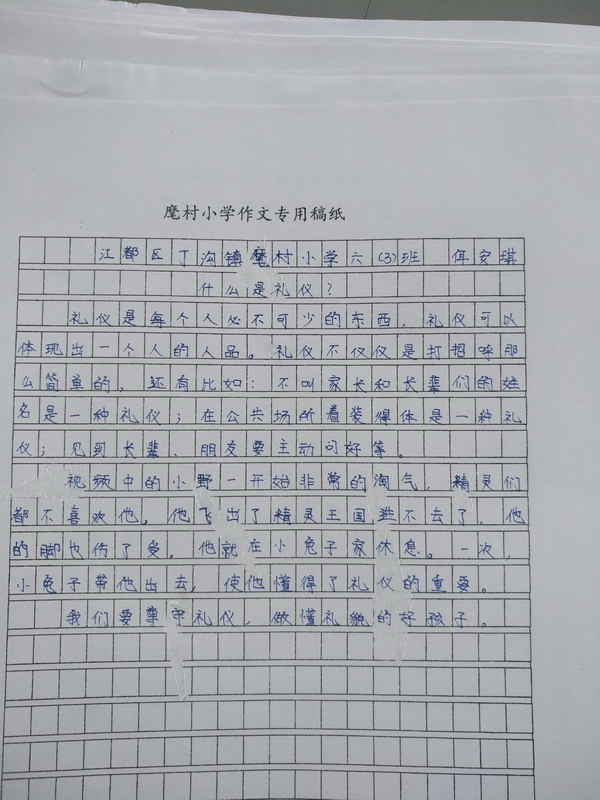 麾村小学作文专用稿纸
江都区丁沟镇麾村小学六(3)班 佴安琪
什么是礼仪?
礼仪是每个人必不可少的东西,礼仪可以
体现出一个人的人品。礼仪不仅仅是打招呼那
么简单的,还有比如:不叫家长和长辈们的姓
名是一种礼仪;在公共场所着装得体是一种礼
仪;见到长辈、朋友要主动问好等。
视频中的小野一开始非常的淘气,精灵们
都不喜欢他。他飞出了精灵王国进不去了,他
的脚也伤了受。他就在小兔子家休息。一次,
小兔子带他出去,使他懂得了礼仪的重要。
我们要尊守礼仪,做懂礼貌的好孩子。